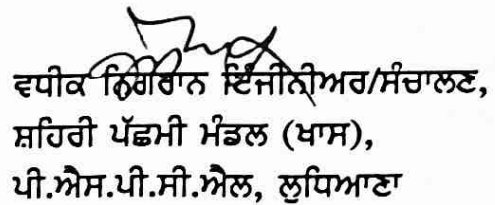 ਵਧੀਕ ਨਿਗਰਾਨ ਇੰਜੀਨੀਅਰ/ਸੰਚਾਲਣ,
ਸ਼ਹਿਰੀ ਪੱਛਮੀ ਮੰਡਲ (ਖਾਸ),
ਪੀ.ਐਸ.ਪੀ.ਸੀ.ਐਲ, ਲੁਧਿਆਣਾ